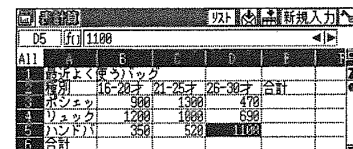 表計算 リスト 新規入力
D5 fn 1100
All A B C D E
1 最近よく使うバッグ
2 種別 16-20才 21-25才 26-30才 合計
3 ポシェッ 900 1300 470
4 リュック 1200 1000 690
5 ハンドバ 350 520 1100
6 合計